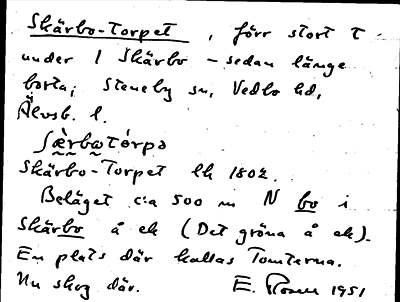 Skärbo-Torpet, förr stort t
under 1 Skärbo – sedan länge
borta; Steneby sn, Vedbo hd,
Älvsb. l.
ʃæ̀rbωtórpə
Skärbo-Torpet hk 1802.
Beläget c:a 500 m N bo i
Skärbo å ek (Det gröna å ek).
En plats där kallas Tomterna.
Nu skog där. E. 1951